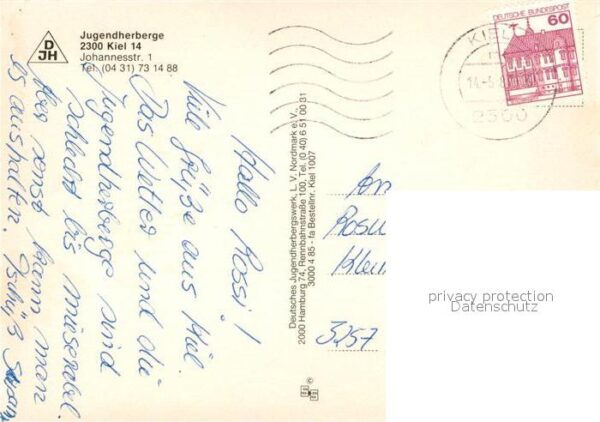 DJH
Jugendherberge
2300 Kiel 14
Johannesstr. 1
Tel. (04 31) 73 14 88
Hallo Rossi!
Viele Grüße aus Kiel.
Das Wetter und die
Jugendherberge sind
schlecht bis miserabel.
Aber sonst kann man
es aushalten. Tschüß
Deutsches Jugendherbergswerk, L. V. Nordmark e. V.,
2000 Hamburg 74, Rennbahnstraße 100, Tel. (0 40) 6 51 00 31
3000 4 85 - fa Bestellnr. Kiel 1007
DEUTSCHE BUNDESPOST
60
KIEL
2300
An
3257
privacy protection
Datenschutz